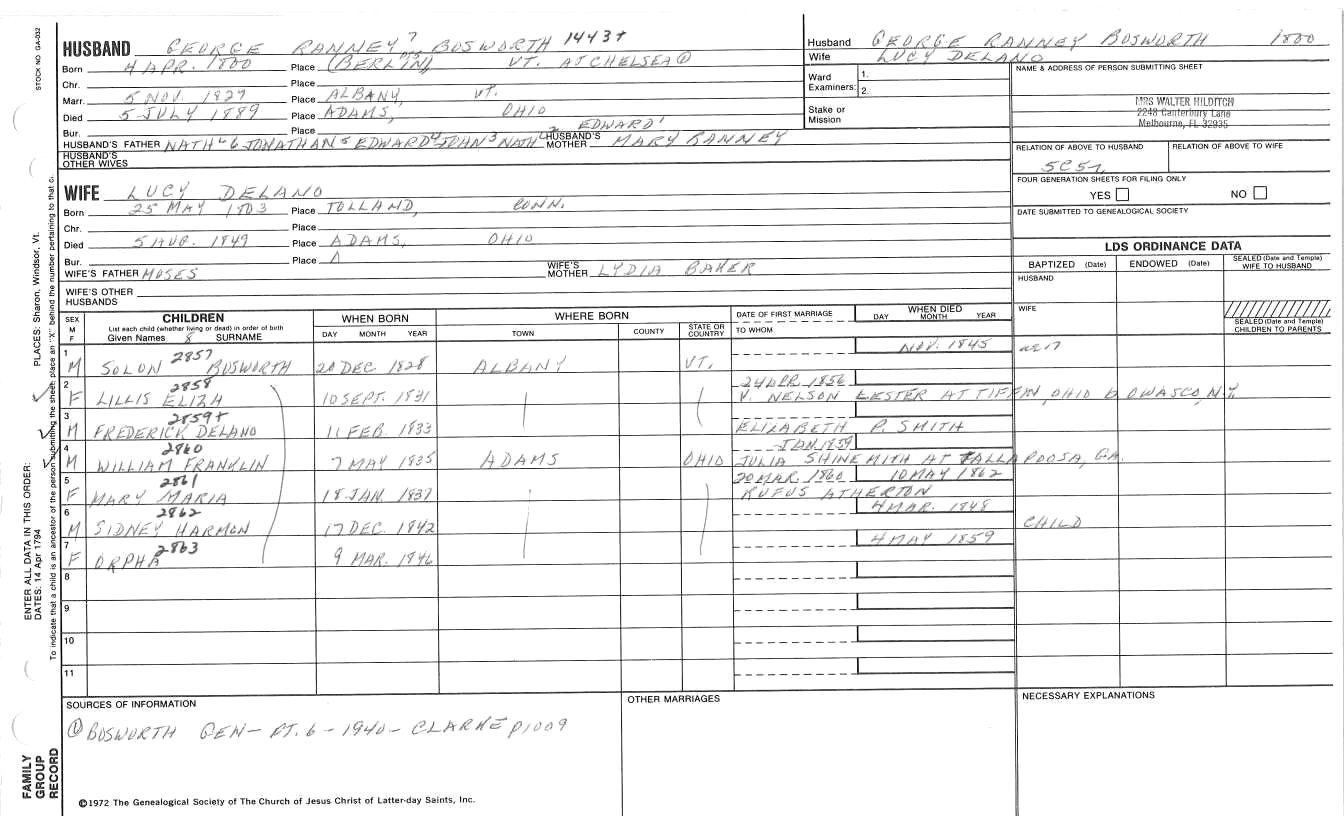 STOCK NO. GA-032
HUSBAND GEORGE RANNEY 7 BOSWORTH 1443+
Born 4 APR. 1800 Place (BERLIN) VT. AT CHELSEA ①
Chr. Place
Marr. 5 NOV. 1827 Place ALBANY, VT.
Died 5 JULY 1889 Place ADAMS, OHIO
Bur. Place
HUSBAND'S FATHER NATH'L 6 JONATHAN 5 EDWARD 4 JOHN 3 NATH'L 2 EDWARD 1 HUSBAND'S MOTHER MARY RANNEY
HUSBAND'S OTHER WIVES
Husband GEORGE RANNEY BOSWORTH 1800
Wife LUCY DELANO
Ward Examiners: 1. 2.
Stake or Mission
NAME & ADDRESS OF PERSON SUBMITTING SHEET
MRS WALTER HILDITCH
2248 Canterbury Lane
Melbourne, FL 32935
RELATION OF ABOVE TO HUSBAND RELATION OF ABOVE TO WIFE
FOUR GENERATION SHEETS FOR FILING ONLY
YES NO
DATE SUBMITTED TO GENEALOGICAL SOCIETY
WIFE LUCY DELANO
Born 25 MAY 1803 Place TOLLAND, CONN.
Chr. Place
Died 5 AUG. 1849 Place ADAMS, OHIO
Bur. Place
WIFE'S FATHER MOSES WIFE'S MOTHER LYDIA BAKER
WIFE'S OTHER HUSBANDS
LDS ORDINANCE DATA
BAPTIZED (Date) ENDOWED (Date) SEALED (Date and Temple) WIFE TO HUSBAND
HUSBAND
WIFE
SEALED (Date and Temple) CHILDREN TO PARENTS
SEX M F CHILDREN List each child (whether living or dead) in order of birth Given Names 8 SURNAME WHEN BORN DAY MONTH YEAR WHERE BORN TOWN COUNTY STATE OR COUNTRY DATE OF FIRST MARRIAGE TO WHOM WHEN DIED DAY MONTH YEAR
1 2857 NOV. 1845
M SOLON BOSWORTH 20 DEC. 1828 ALBANY VT.
2 2858 24 APR. 1856
F LILLIS ELIZA 10 SEPT. 1831 V. NELSON LESTER AT TIFFIN, OHIO & OWASCO, N.Y.
3 2859+
M FREDERICK DELANO 11 FEB. 1833 ELIZABETH P. SMITH
4 2860 JAN. 1859
M WILLIAM FRANKLIN 7 MAY 1835 ADAMS OHIO JULIA SHINEMITH AT TALLAPOOSA, GA.
5 2861 20 MAR. 1860 10 MAY 1862
F MARY MARIA 18 JAN. 1837 RUFUS ATHERTON
6 2862 4 MAR. 1848
M SIDNEY HARMON 17 DEC. 1842 CHILD
7 2863 4 MAY 1859
F ORPHA 9 MAR. 1846
8
9
10
11
SOURCES OF INFORMATION OTHER MARRIAGES NECESSARY EXPLANATIONS
① BOSWORTH GEN- PT. 6 - 1940 - CLARKE P1009
©1972 The Genealogical Society of The Church of Jesus Christ of Latter-day Saints, Inc.
FAMILY GROUP RECORD
ENTER ALL DATA IN THIS ORDER:
DATES: 14 Apr 1794
PLACES: Sharon, Windsor, Vt.
To indicate that a child is an ancestor of the person submitting the sheet, place an "X" behind the number pertaining to that c